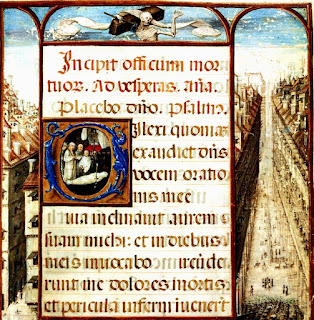 Incipit officium mor
tuor. Ad vesperas. Aña.
Placebo dño. Psalm̃.
Dilexi quoniã
exaudiet dñs
vocem oratio
nis mee
Quia inclinavit aurem
suam michi: et in diebus
meis invocabo
Circũde
runt me dolores mortis:
et pericula inferni invenerũt